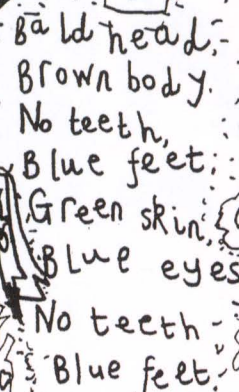 Bald head,
Brown body.
No teeth,
Blue feet.
Green skin,
Blue eyes
No teeth -
Blue feet.